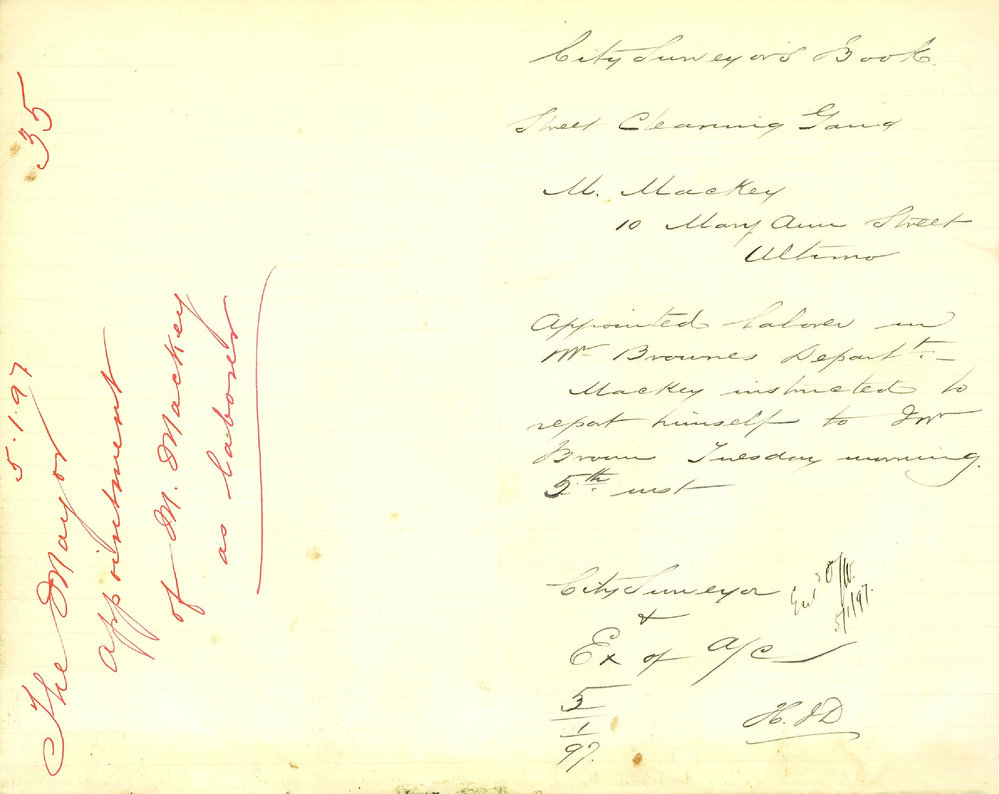 City Surveyor's Book.
Street Cleaning Gang
M. Mackey
10 Mary Ann Street
Ultimo
Appointed laborer in
Mr Brownes Departt. –
Mackey instructed to
report himself to Mr
Browne Tuesday morning
5th. inst
City Surveyor
&
Ex of A/c
5
1
97.
H. J D
5/1/97.
35
5.1.97
The Mayor
appointment
of M. Mackey
as laborer